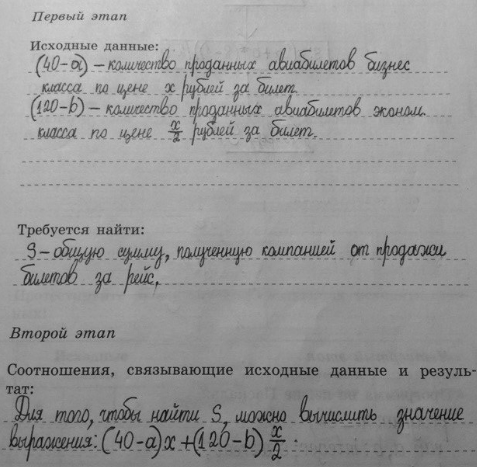 Первый этап
Исходные данные:
(40-a) – количество проданных авиабилетов бизнес
класса по цене x рублей за билет.
(120-b) – количество проданных авиабилетов эконом.
класса по цене x/2 рублей за билет.
Требуется найти:
S – общую сумму, полученную компанией от продажи
билетов за рейс.
Второй этап
Соотношения, связывающие исходные данные и резуль-
тат:
Для того, чтобы найти S, можно вычислить значение
выражения: (40-a)x+(120-b) x/2 :